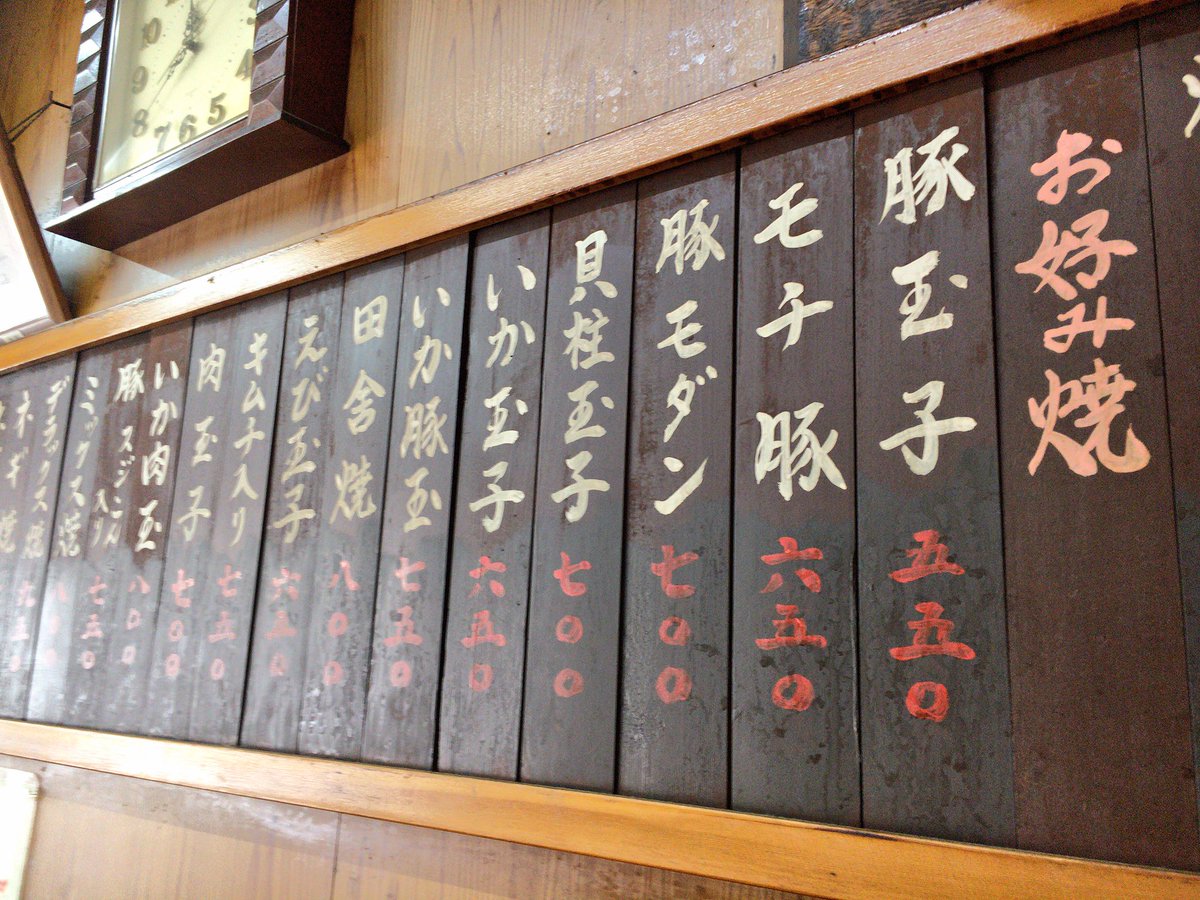 お好み焼
豚玉子 五五〇
モチ豚 六五〇
豚モダン 七〇〇
貝柱玉子 七〇〇
いか玉子 六五〇
いか豚玉 七五〇
田舎焼 八〇〇
えび玉子 六五〇
キムチ入り 七五〇
肉玉子 七〇〇
いか肉玉 八〇〇
豚スジこん入り 七五〇
ミックス焼 八〇〇
デラックス焼
ネギ焼
10
9
8
7
6
5
4